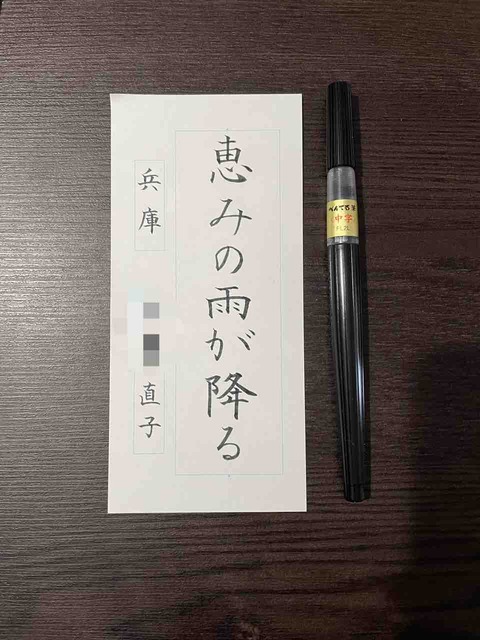 恵みの雨が降る
兵庫
直子
ぺんてる筆
中字